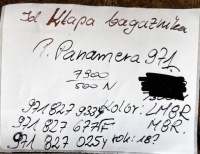 Klapa bagażnika
P. Panamera 971
7900
500 N
971 827 933 Kolor: LM8R
971 827 677F M8R.
971 827 025 rok: 18?